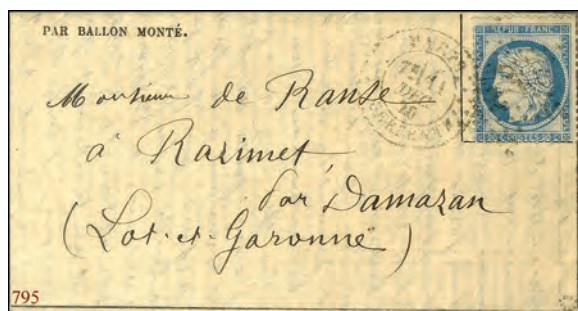 PAR BALLON MONTÉ.
REPUB FRANC
20 C POSTES 20 C
Monsieur de Ranse
à Razimet,
par Damazan
(Lot-et-Garonne)
795